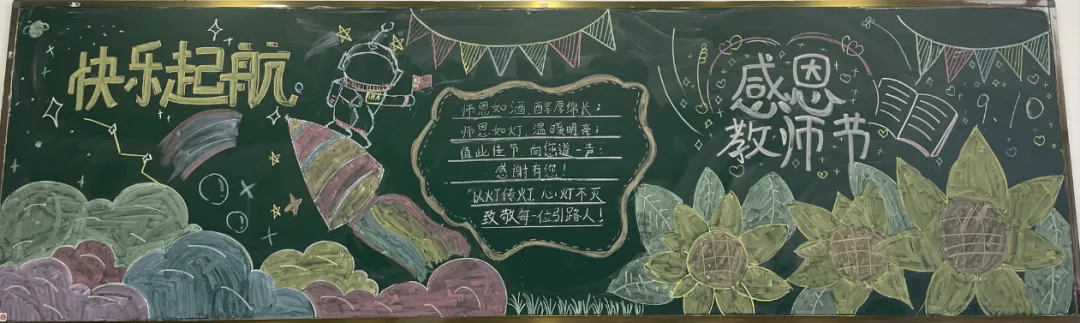 快乐起航
师恩如酒,醇厚绵长;
师恩如灯,温暖明亮;
值此佳节,向您道一声:
感谢有您!
“以灯传灯,心灯不灭
致敬每一位引路人!
感恩
教师节
9.10